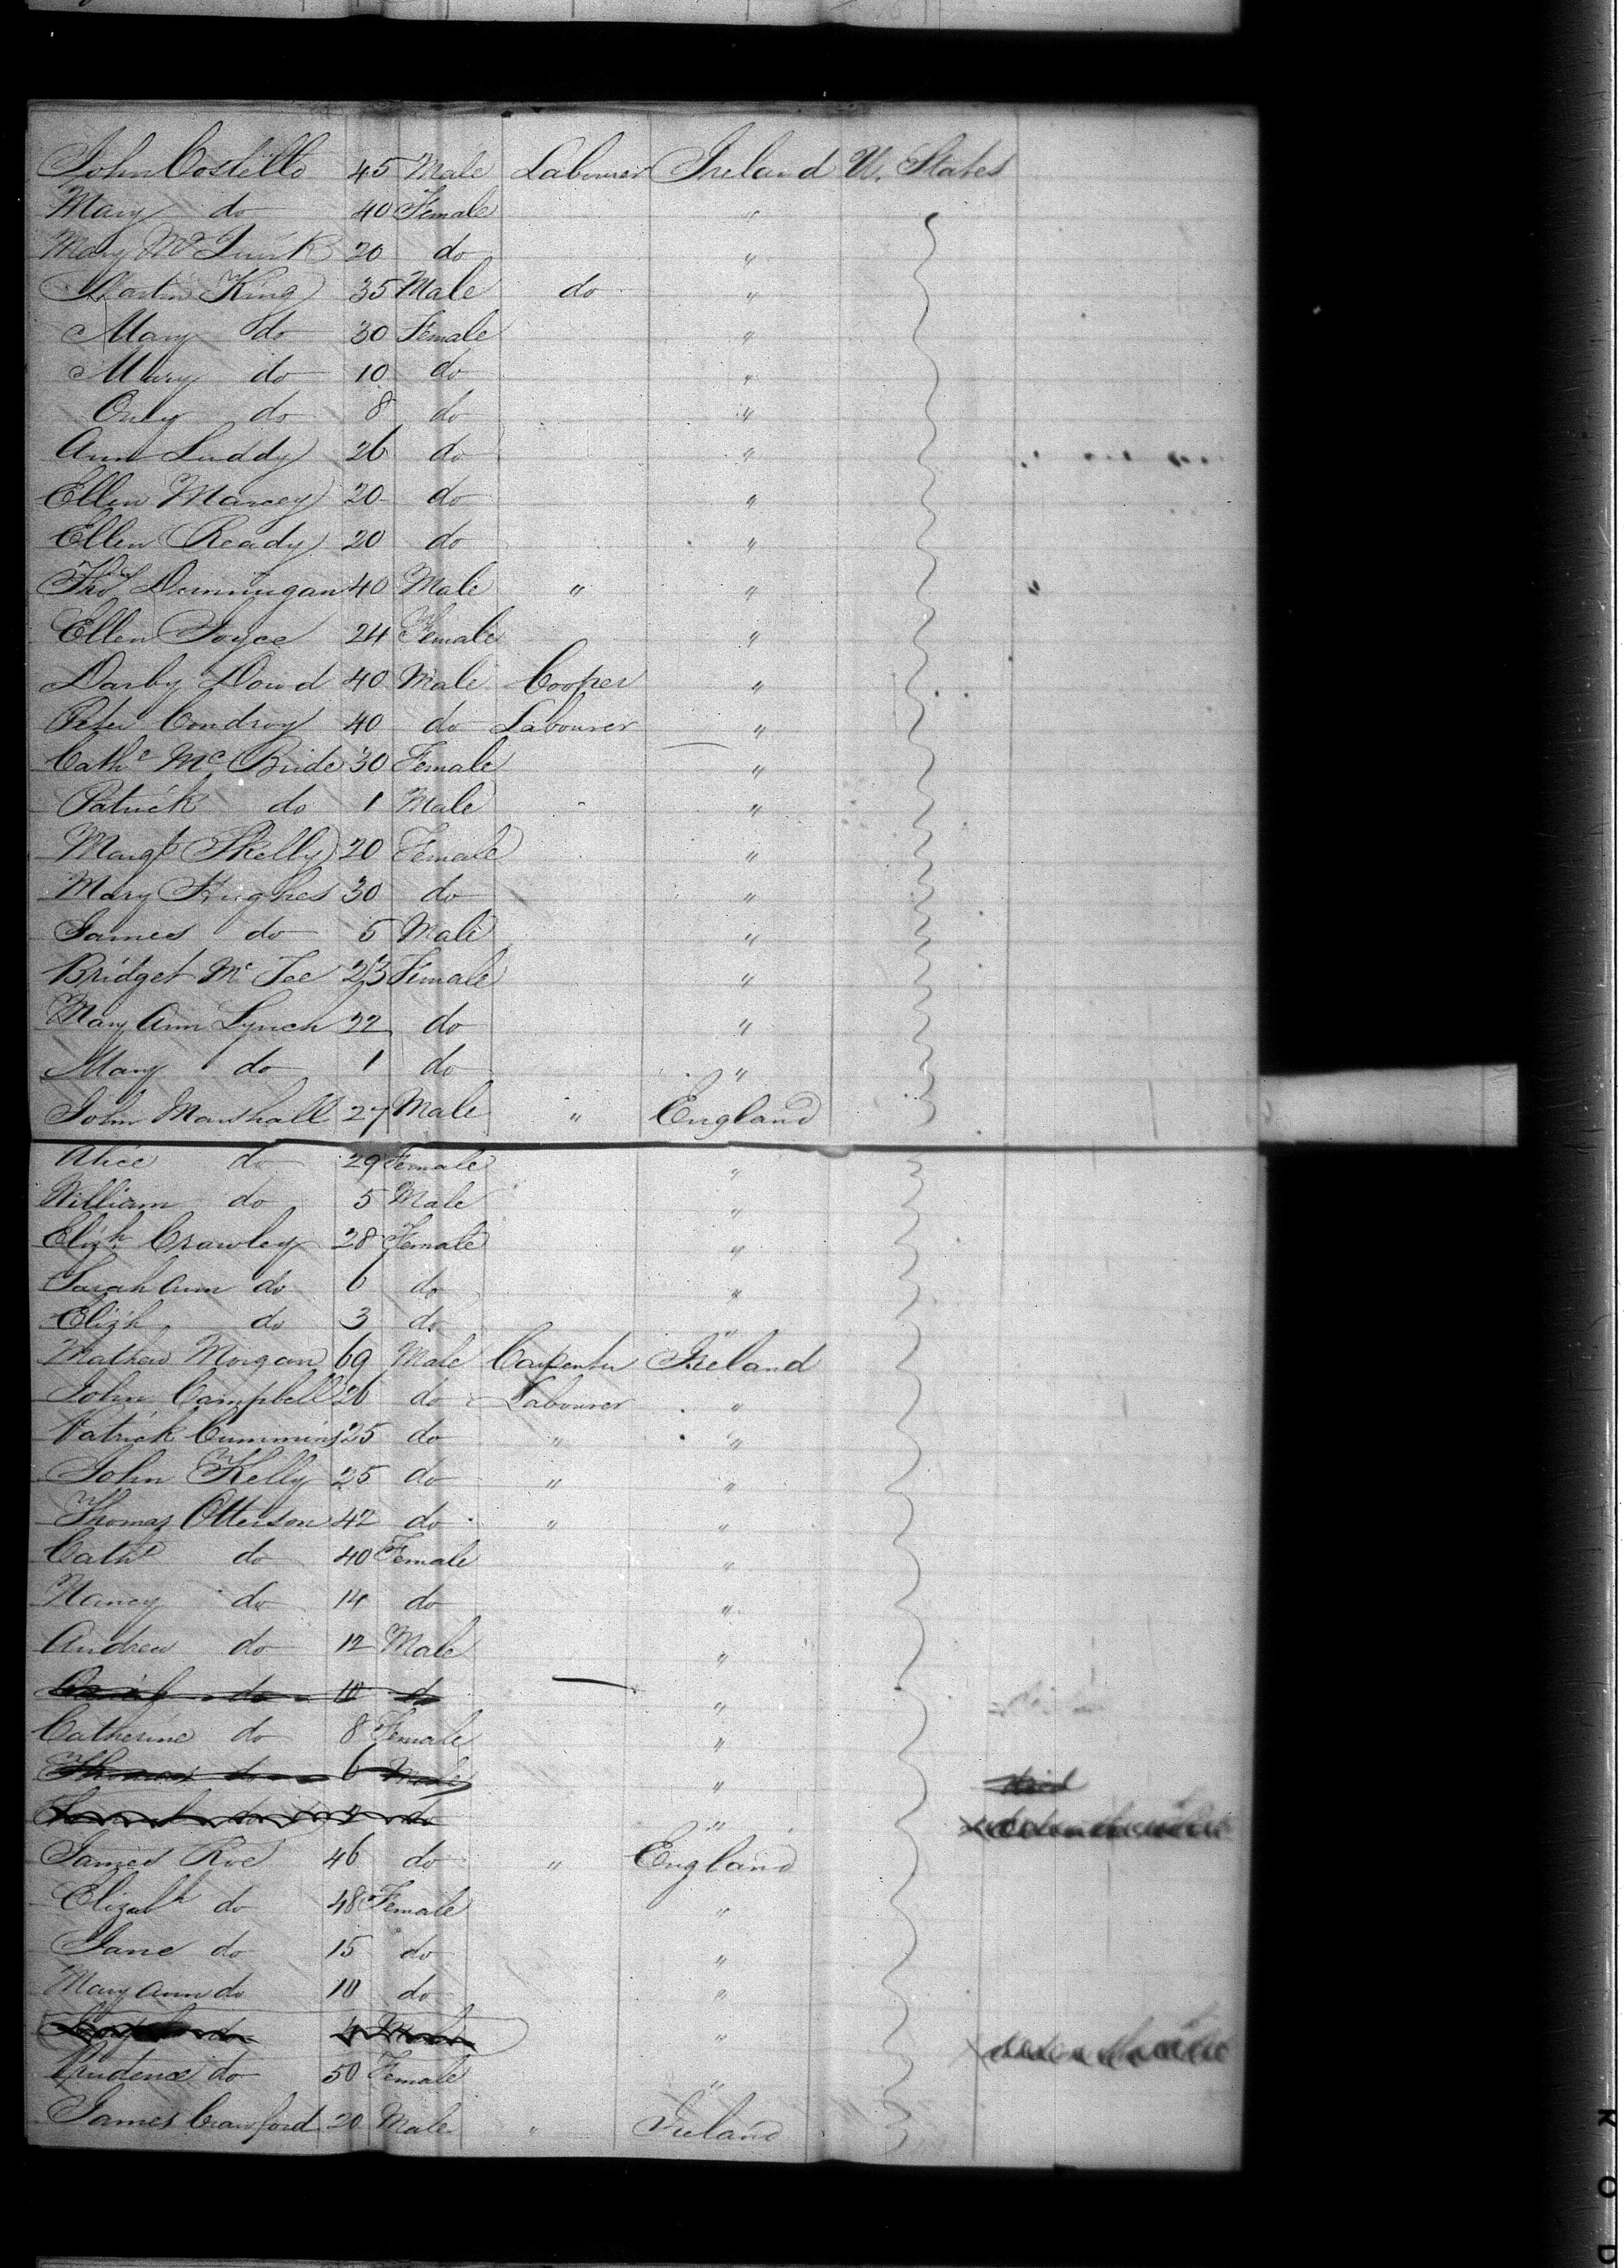 John Costello 45 Male Labourer Ireland U. States
Mary do 40 Female "
Mary Mc 20 do "
Martin King 35 Male do "
Mary do 30 Female "
Mary do 10 do "
Only do 8 do "
Ann Luddy 26 do "
Ellen Marcey 20 do "
Ellen Ready 20 do "
Thos Dunningan 40 Male " "
Ellen Joyce 24 Female "
Darby Dowd 40 Male Cooper "
Peter Condroy 40 do Labourer "
Cathe Mc Bride 30 Female "
Patrick do 1 Male "
Margt Skelly 20 Female "
Mary Hughes 30 do "
James do 5 Male "
Bridget Mc Fee 23 Female "
Mary Ann Lynch 22 do "
Mary do 1 do "
John Marshall 27 Male " England
Alice do 29 Female "
William do 5 Male "
Elizh Crawley 28 Female "
Sarah Ann do 6 do "
Elizh do 3 do "
Mathew Morgan 69 Male Carpenter Ireland
John Campbell 26 do Labourer "
Patrick Cummins 25 do " "
John Kelly 25 do " "
Thomas Otterson 42 do " "
Cathe do 40 Female "
Nancy do 14 do "
Andrew do 12 Male "
do 10 do "
Catherine do 8 Female "
Thomas do 6 Male " died
do 2 do "
James Roe 46 do " England
Elizabh do 48 Female "
Jane do 15 do "
Mary Ann do 10 do "
do 4 Male "
Prudence do 50 Female "
James Crawford 20 Male " Ireland
K O D